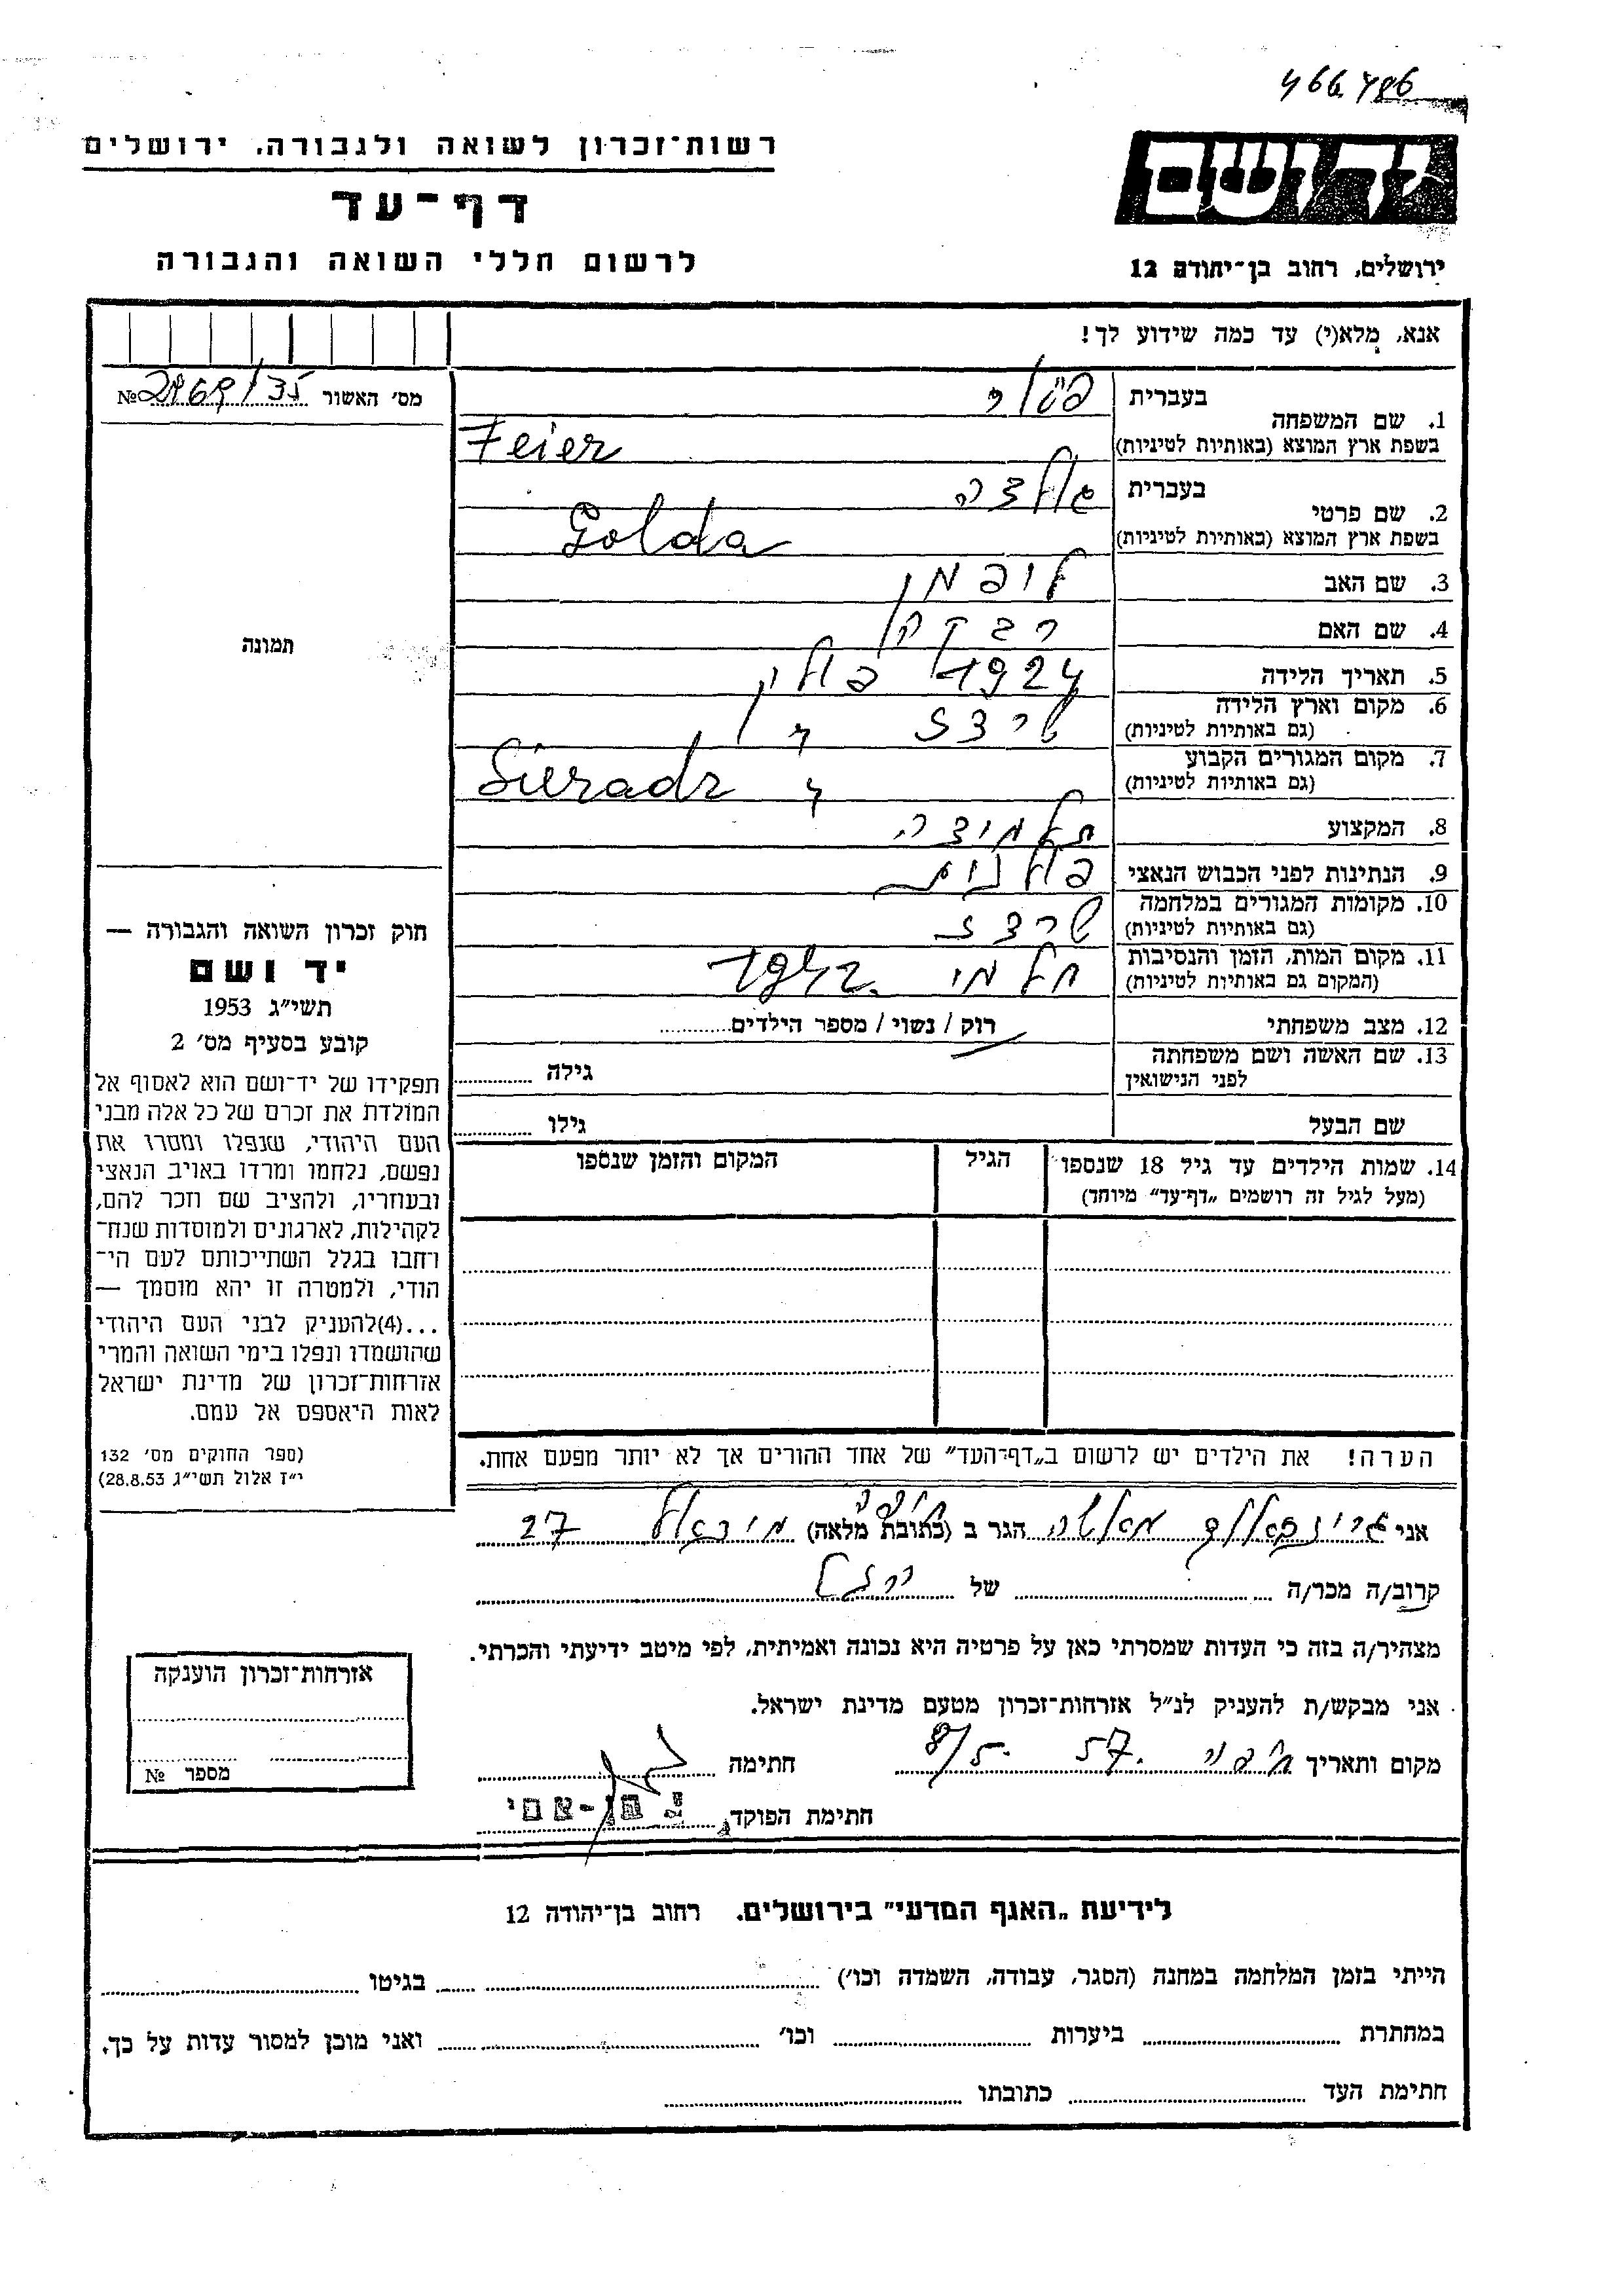 466486
רשות־זכרון לשואה ולגבורה, ירושלים
יד ושם
דף־עד
לרשום חללי השואה והגבורה
ירושלים, רחוב בן־יהודה 12
אנא, מלא(י) עד כמה שידוע לך!
מס׳ האשור №
1. שם המשפחה
בעברית
בשפת ארץ המוצא (באותיות לטיניות) Feier
2. שם פרטי
בעברית גולדה
בשפת ארץ המוצא (באותיות לטיניות) Golda
3. שם האב ליפמן
4. שם האם רבקה
5. תאריך הלידה 1924 פולין
6. מקום וארץ הלידה
(גם באותיות לטיניות) שרדז
7. מקום המגורים הקבוע
(גם באותיות לטיניות) Sieradz
8. המקצוע תלמידה
9. הנתינות לפני הכבוש הנאצי פולנית
10. מקומות המגורים במלחמה
(גם באותיות לטיניות) שרדז
11. מקום המות, הזמן והנסיבות
(המקום גם באותיות לטיניות) חלמו 1942.
12. מצב משפחתי רוק / נשוי / מספר הילדים
13. שם האשה ושם משפחתה
לפני הנישואין גילה
שם הבעל גילו
14. שמות הילדים עד גיל 18 שנספו הגיל המקום והזמן שנספו
(מעל לגיל זה רושמים „דף־עד״ מיוחד)
הערה! את הילדים יש לרשום ב„דף־העד״ של אחד ההורים אך לא יותר מפעם אחת.
תמונה
חוק זכרון השואה והגבורה —
יד ושם
תשי״ג 1953
קובע בסעיף מס׳ 2
תפקידו של יד־ושם הוא לאסוף אל
המולדת את זכרם של כל אלה מבני
העם היהודי, שנפלו ומסרו את
נפשם, נלחמו ומרדו באויב הנאצי
ובעוזריו, ולהציב שם וזכר להם,
לקהילות, לארגונים ולמוסדות שנח־
רחבו בגלל השתייכותם לעם הי־
הודי, ולמטרה זו יהא מוסמך —
...(4)להעניק לבני העם היהודי
שהושמדו ונפלו בימי השואה והמרי
אזרחות־זכרון של מדינת ישראל
לאות היאספם אל עמם.
(ספר החוקים מס׳ 132
י״ז אלול תשי״ג 28.8.53)
אני הגר ב (כתובת מלאה) חיפה 27
קרוב/ה מכר/ה של
מצהיר/ה בזה כי העדות שמסרתי כאן על פרטיה היא נכונה ואמיתית, לפי מיטב ידיעתי והכרתי.
אני מבקש/ת להעניק לנ״ל אזרחות־זכרון מטעם מדינת ישראל.
מקום ותאריך חיפה 8/5. 57. חתימה
חתימת הפוקד
אזרחות־זכרון הוענקה
מספר №
לידיעת „האגף המדעי״ בירושלים, רחוב בן־יהודה 12
הייתי בזמן המלחמה במחנה (הסגר, עבודה, השמדה וכו׳) בגיטו
במחתרת ביערות וכו׳ ואני מוכן למסור עדות על כך.
חתימת העד כתובתו